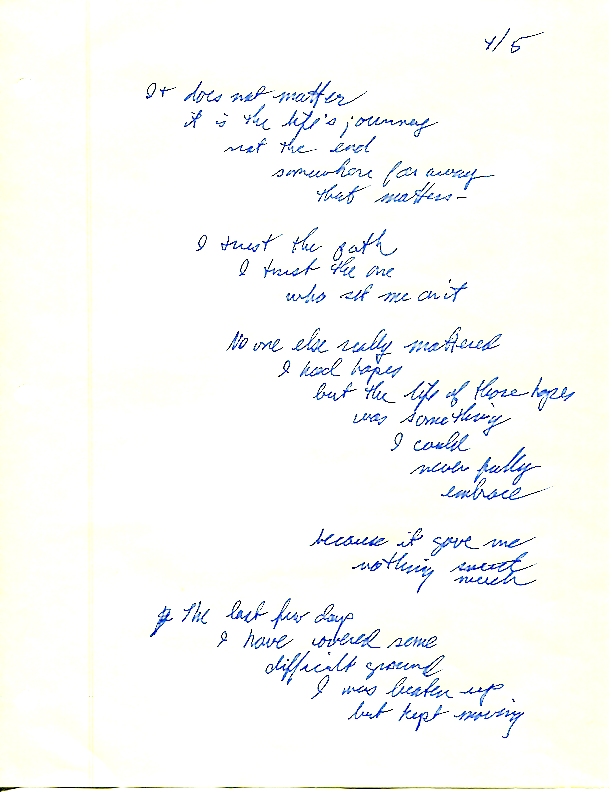 4/5
It does not matter
it is the life's journey
not the end
somewhere far away
that matters-
I trust the path
I trust the one
who set me on it
No one else really mattered
I had hopes
but the life of those hopes
was something
I could
never fully
embrace
because it gave me
nothing
much
The last few days
I have covered some
difficult ground
I was beaten up
but kept moving